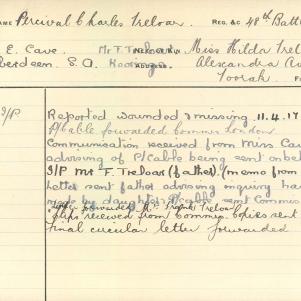 AME Percival Charles Treloar. REG. & C 48th Batt
E. Cave. Mr F. Treloar Miss Hilda Trel
berdeen. S.A. Kooringa Alexandra Av
Toorak.
S/P Reported wounded & missing 11.4.17
P/Cable forwarded Commis London
Communication received from Miss Cav
advising of P/Cable being sent on bel
S/P Mr F. Treloar (father) (memo from
Letter sent father advising inquiry ha
made by daughter, P/Cable sent Commis
forwarded Mr Frank Treloar
slips received from Commis. Copies sent
Final circular letter forwarded